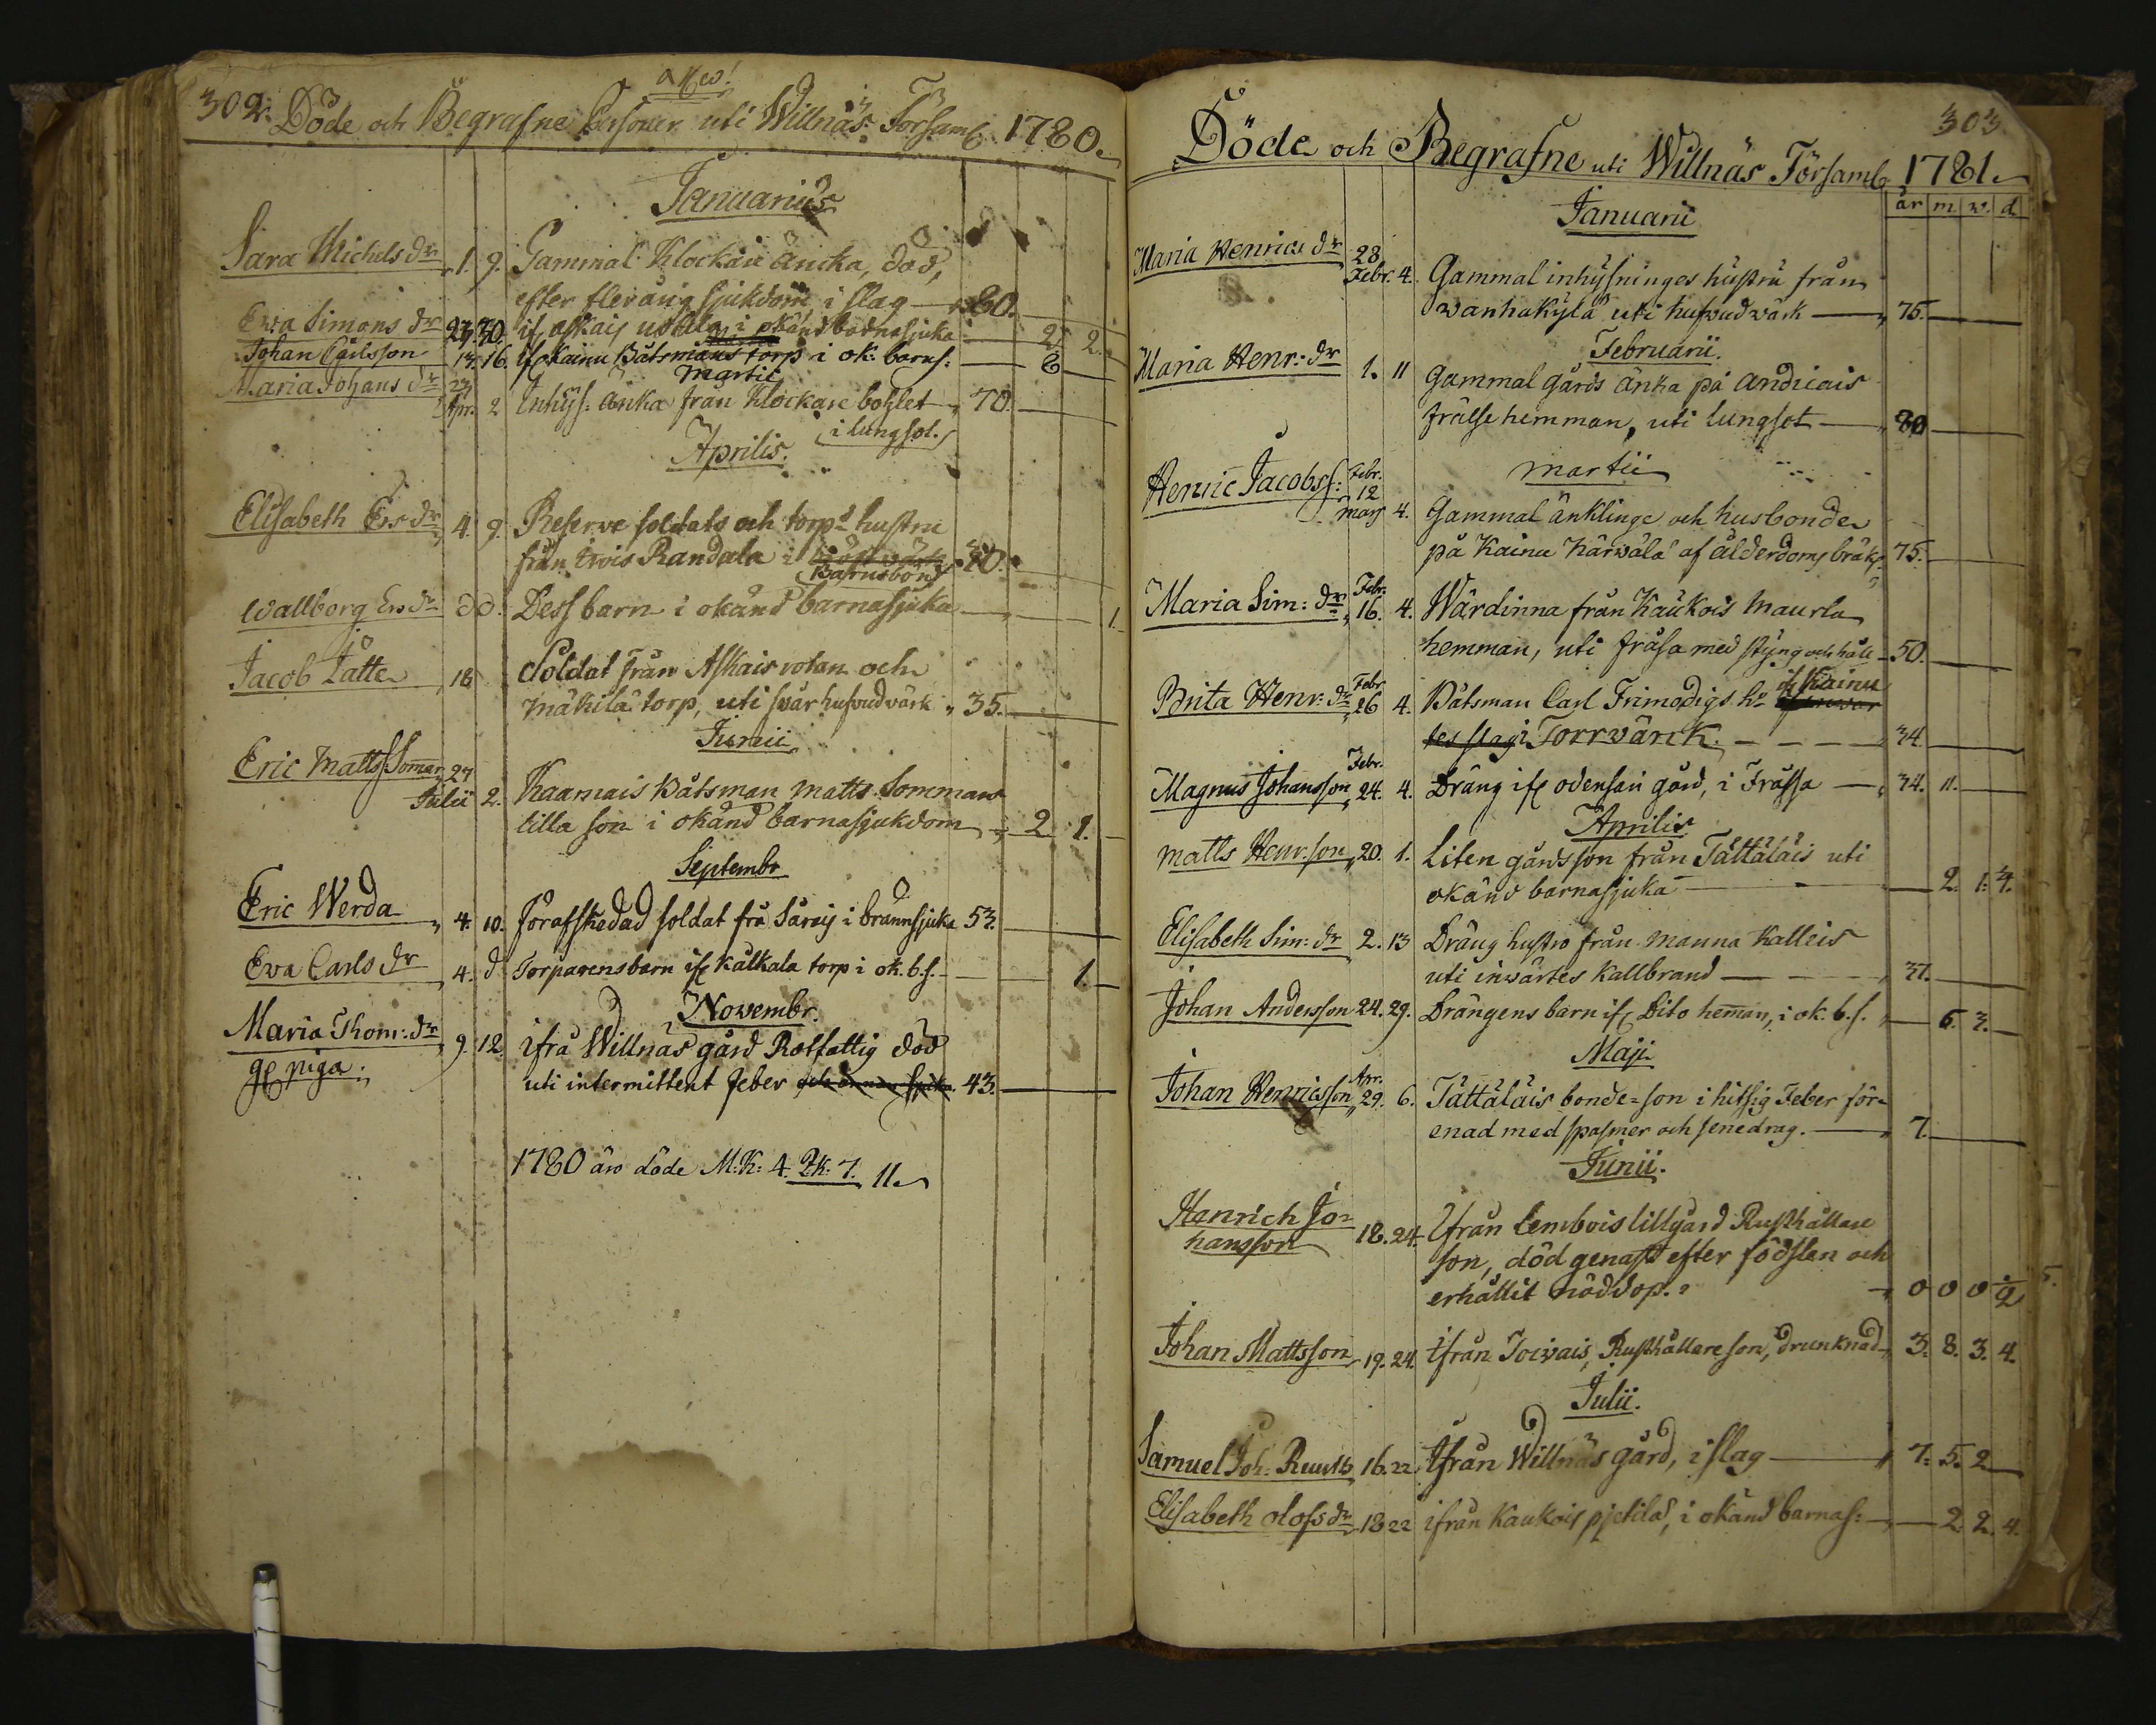 302. Döde och Begrafne Personer uti Willnäs Församl 1780.
Januarius
Sara Michels dr 1. 9. Gammal Klockare äncka, död,
efter flerårig sjukdom i slag 80.
Ewa Simons dr 23. 30. if. askais i okänd barnasjuka 2 2.
Johan Carlsson 13. 16. if Kainu Båtsmans torp i ok: barns: 6
Martii
Maria Johans dr 23 Apr. 2 Inhys: änka från Klockare bohlet 70.
i lungsot.
Aprilis.
Elisabeth Ers dr 4. 9. Reserve soldats och torps hustru
från Randala i 40.
Barnsbörd
Wallborg Ers dr dd. Dess barn i okänd barnasjuka 1.
Jacob Lätte 18 Soldat från Askais rotan och
mäkilä torp, uti svår hufvudvärk 35.
Junii
Eric Matts Somman 27
Julii 2. Kaamais Båtsman Matts Sommans
lilla son i okänd barnasjukdom 2 1.
Septembr
Eric Werda 4. 10. Förafskedad soldat frå Särais i brännsjuka 53.
Eva Carls dr 4. d Torparens barn if Kalkala torp i ok. b. s. 1.
Novembr.
Maria Thom: dr 9. 12. ifrå Willnäs gård Rotfattig död
gl piga. uti intermittent feber 43.
1780 äro döde M: K: 4. Qk. 7. 11
303
Döde och Begrafne uti Willnäs Församl 1781.
år m. w. d.
Januarii
Maria Henrics dr 28
Febr. 4. Gammal inhysninges hustru från
wanhakylä uti hufwudwärk 75.
Februarii.
Maria Henr: dr 1. 11 Gammal gårds änka på andicais
frälse hemman, uti lungsot 80
Martii
Henric Jacobss: Febr. 12
mars 4. Gammal änklinge och husbonde
på Kainu Härwälä af ålderdoms bräkl: 75.
Maria Sim: dr Febr. 16. 4. Wärdinna från Kaukois Maurla
hemman, uti fråsa med styng och håll 50.
Brita Henr: dr Febr 26 4. Båtsman Carl Frimodigs ho if Kainu
Torrwärck. 34.
Magnus Johansson Febr. 24. 4. Dräng if odensari gård, i Fråssa 34. 11.
Aprilis
Matts Henr:son 20. 1. Liten gårds son från Tättäläis uti
okänd barnasjuka 2. 1. 4.
Elisabeth Sim: dr 2. 13 Dräng hustro från Manna Kalleis
uti inwärtes kallbrand 37.
Johan Andersson 24. 29. Drängens barn if Dito hemman, i ok. b. s. 6. 3.
Maji
Johan Henricsson Apr. 29. 6. Tättäläis bonde=son i hitsig Feber för-
enad med spasmer och senedrag. 7.
Junii.
Henrich Jo-
hansson 18. 24. Ifrån Lembois lillgård Rusthållare
son, död genast efter födslen och
erhållit nöddop. 0 0 0 ½
Johan Mattsson 19. 24. ifrån Joivais, Rusthållare son, drunknad 3. 8. 3. 4.
Julii.
Samuel Joh: 16. 22 Ifrån Willnäs gård, i slag 7. 5. 2
Elisabeth Olofs dr 18 22 ifrån Kaukois pjetilä, i okänd barnas: 2. 2. 4.